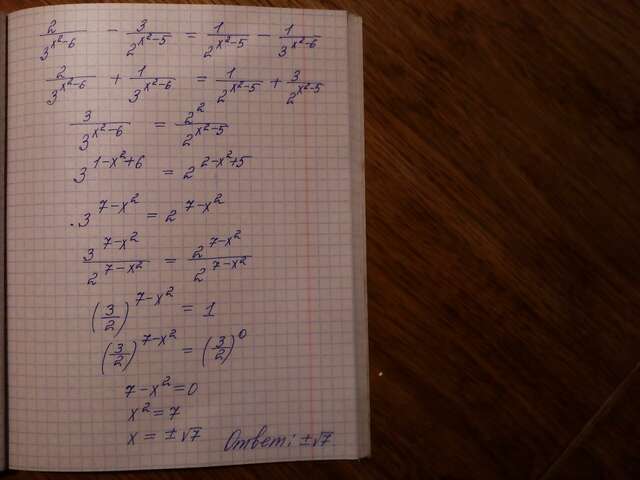 2/3^(x²-6) - 3/2^(x²-5) = 1/2^(x²-5) - 1/3^(x²-6)
2/3^(x²-6) + 1/3^(x²-6) = 1/2^(x²-5) + 3/2^(x²-5)
3/3^(x²-6) = 2²/2^(x²-5)
3^(1-x²+6) = 2^(2-x²+5)
3^(7-x²) = 2^(7-x²)
3^(7-x²)/2^(7-x²) = 2^(7-x²)/2^(7-x²)
(3/2)^(7-x²) = 1
(3/2)^(7-x²) = (3/2)^0
7-x²=0
x²=7
x = ±√7 Ответ: ±√7